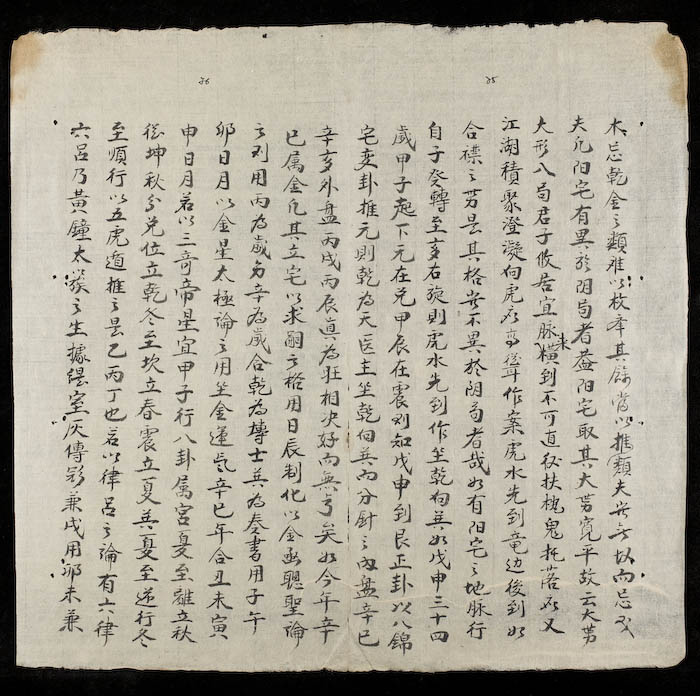 木忌乾金之類難以枚舉其餘當以推類夫豈無拟而忌
夫凡阳宅有異於阴局者蓋阳宅取其大势寛平故云大势
大形入局君子攸居宜脉來横到不可直
江湖積聚澄凝向虎作案虎水先到竜边後到如
合襟之势是其格豈不異於阴局者哉如有阳宅之地脉行
自子癸轉至亥右旋則虎水先到作坐乾向巽如戊申三十四
歲甲子起下元在兑甲辰在震則知戊申到艮正卦以八錦
宅变卦推元則乾為天医主坐乾向巽而分針之内盤辛巳
辛亥外盘丙戌丙辰真為旺相决好而無亏矣如今年辛
巳属金凡其立宅以求嗣之格用日辰制化以金函聰聖論
之則用丙為歲为辛為歲合乾為博士巽為奏書用子午
卯日月以金星太極論之用坐金運氣辛巳年合丑未寅
申日月若以三奇帝星宜甲子行八卦属宫夏至離立秋
從坤秋分兑位立乾冬至坎立春震立夏巽夏至逆行冬
至順行以五虎遁推之是乙丙丁也若以律吕之論有六律
六吕乃黄鐘太簇之生據緹室灰傳彩兼戌用卯未兼
25
26